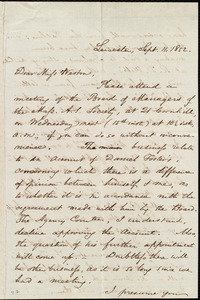 Leicester, Sept. 11, 1852.
Dear Miss Weston,
Please attend a
meeting of the Board of Managers of
the Mass. A. S. Society, at 21 Cornhill
on Wednesday next, (15th inst.) at 10½
a.m., if you can do so without inconve-
nience. The main business relates
to an account of Daniel Foster's,
concerning which there is a difference
of opinion between himself & me, as
to whether it is in accordance with the
agreement made with him by the Board.
The Agency Comtee, I understand,
decline approving the account. Also
the question of his further appointment
will come up. Doubtless there will
be other business, as it is so long since we
had a meeting.
I presume you